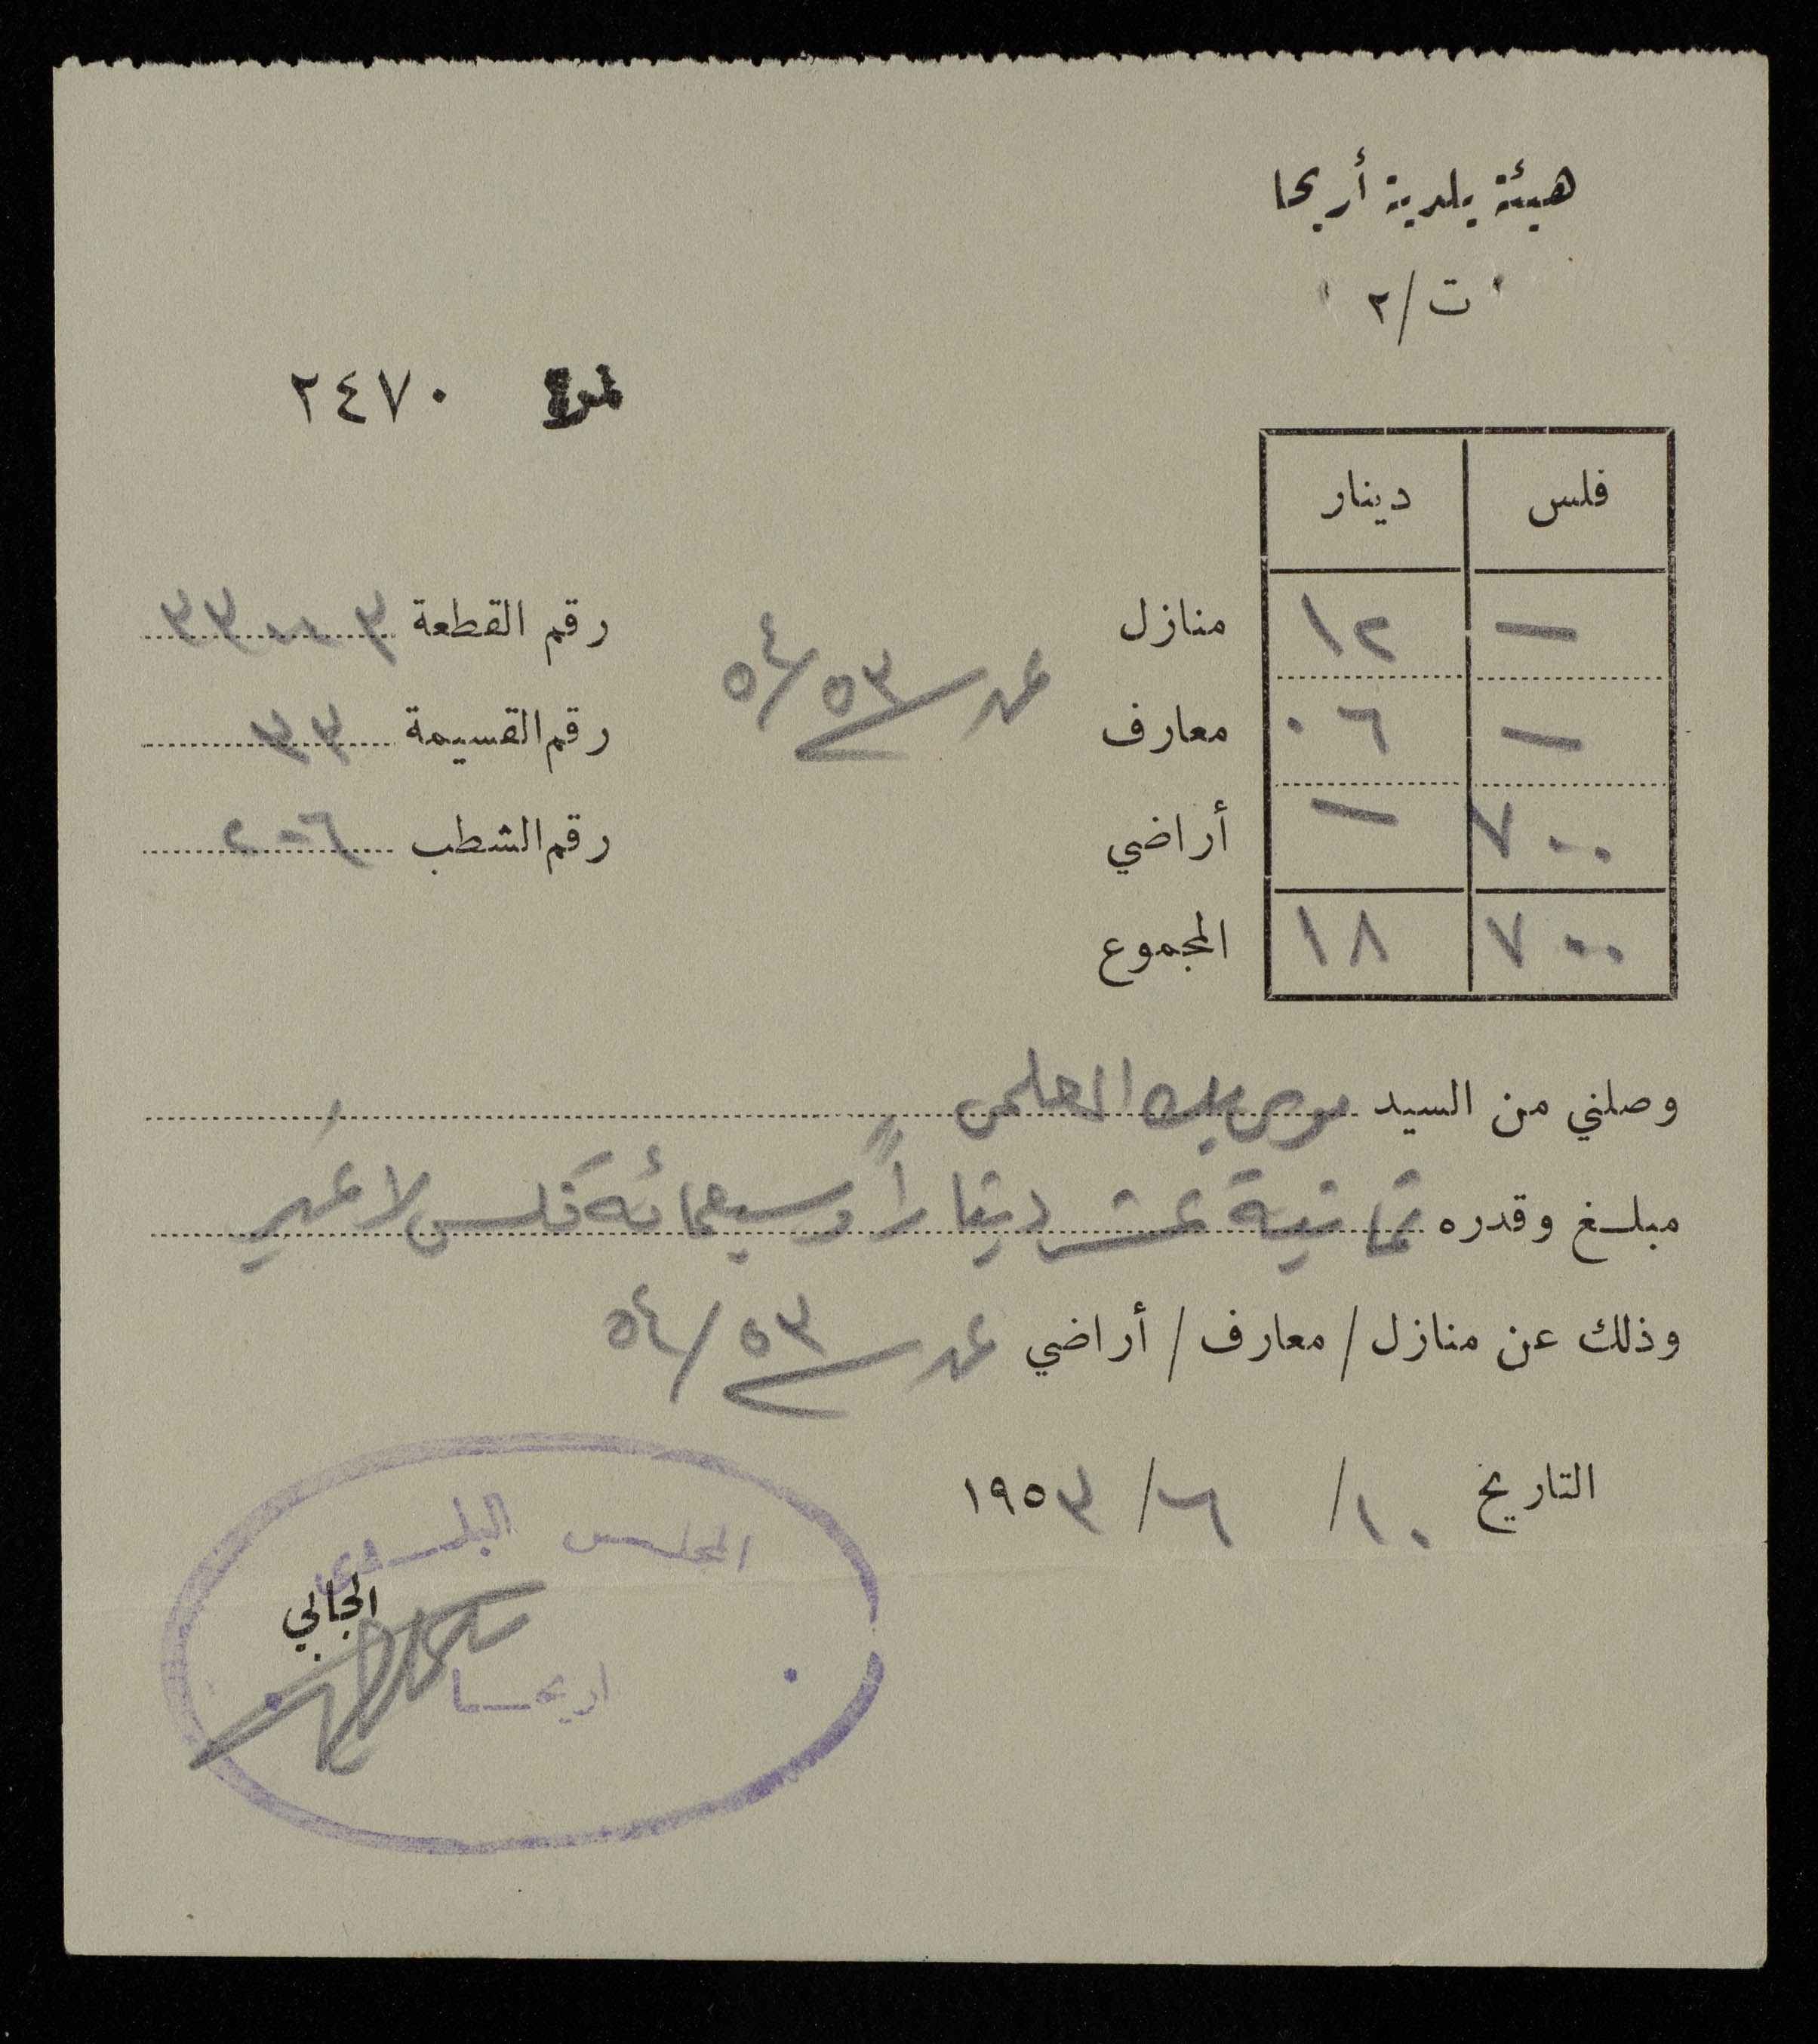 هيئة بلدية أريحا
ت/٢
نمرة ٢٤٧٠
فلس دينار
— ١٢ منازل
— ٠٦ معارف
٧٠٠ — أراضي
٧٠٠ ١٨ المجموع
عن ٥٤/٥٣
رقم القطعة
رقم القسيمة ٣٣
رقم الشطب
وصلني من السيد موسى بك العلمي
مبلغ وقدره ثمانية عشر ديناراً وسبعمائة فلس لا غير
وذلك عن منازل / معارف / أراضي عن ٥٤/٥٣
التاريخ ١٠ / ٦ / ١٩٥٣
الجابي
المجلس البلدي
اريحا